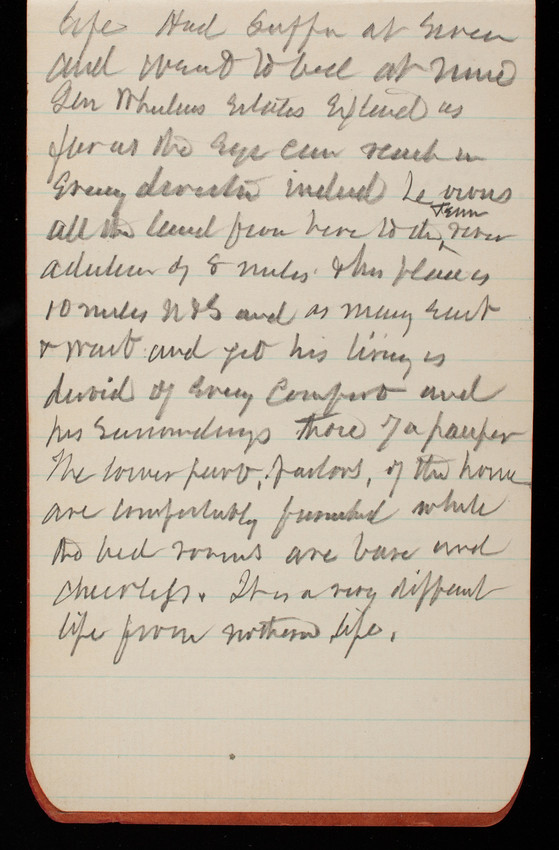 life Had Supper at Seven
and went to bed at nine
Gen Wheelers Estates Extend as
far as the Eye can reach in
Every direction indeed he owns
all the land from here to the Tenn river
a distance of 8 miles. & this place is
10 miles N & S and as many East
& West and yet his living is
devoid of Every Comfort and
his Surroundings those of a pauper
The lower part, parlors, of the home
are comfortably furnished while
the bed rooms are bare and
cheerless. It is a very different
life from northern life.